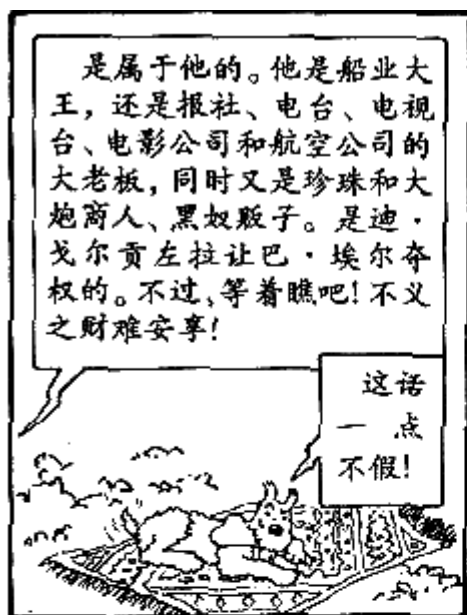 是属于他的。他是船业大
王，还是报社、电台、电视
台、电影公司和航空公司的
大老板，同时又是珍珠和大
炮商人、黑奴贩子。是迪·
戈尔贡左拉让巴·埃尔夺
权的。不过、等着瞧吧！不义
之财难安享！
这话
一点
不假！